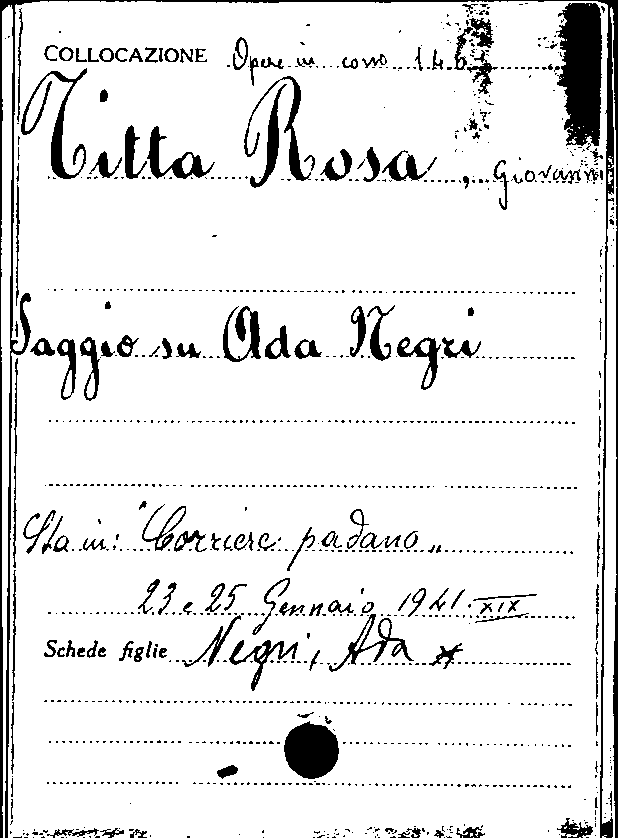 COLLOCAZIONE Opere in corso 146
Titta Rosa, Giovanni
Saggio su Ada Negri
Sta in: "Corriere padano„
23 e 25 Gennaio 1941. XIX
Schede figlie Negri, Ada *